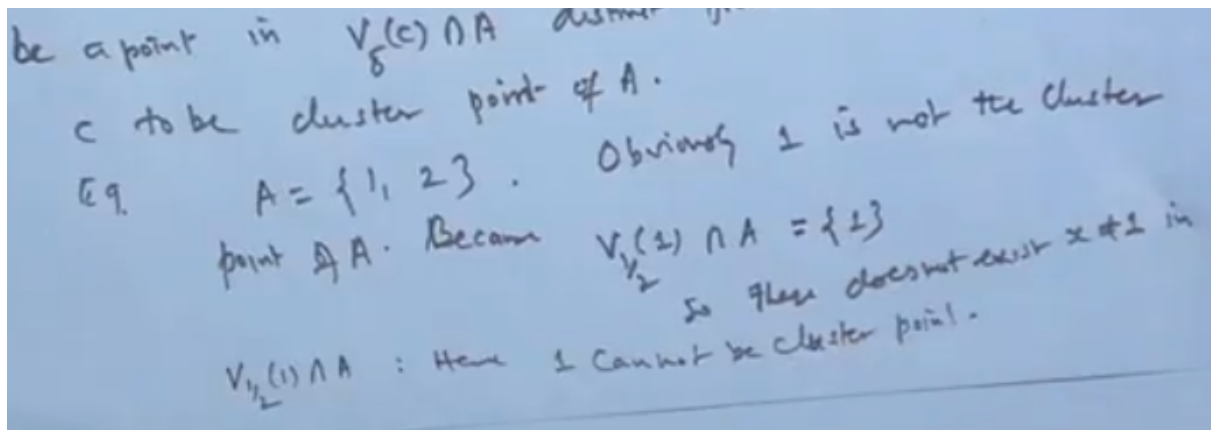 be a point in V_δ(c) ∩ A distinct
c to be cluster point of A.
Eg. A = {1, 2}. Obviously 1 is not the cluster
point of A. Because V_{1/2}(1) ∩ A = {1}
So there does not exist x ≠ 1 in
V_{1/2}(1) ∩ A : Hence 1 cannot be cluster point.